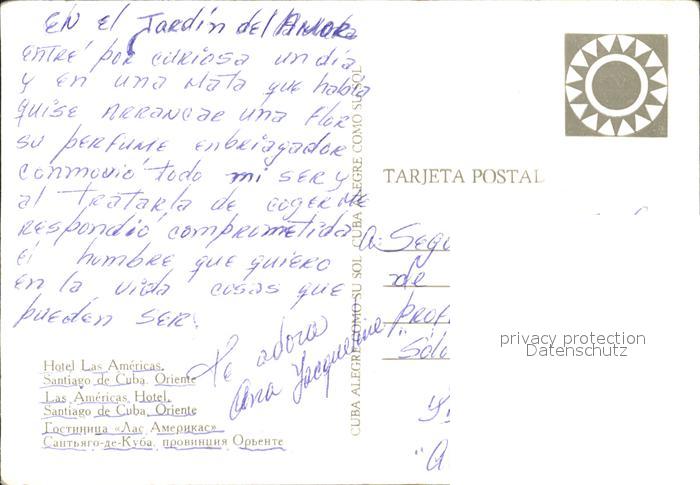 EN el Jardín del Amor
entré por curiosa un día
y en una mata que había
quise arrancar una flor
su perfume enbriagador
conmovió todo mi ser y
al tratarla de coger me
respondió comprometida
el hombre que quiero
en la vida cosas que
pueden ser.
te adora
Ana Jacqueline
Hotel Las Américas.
Santiago de Cuba. Oriente
Las Américas Hotel.
Santiago de Cuba, Oriente
Гостиница «Лас Америкас»
Сантьяго-де-Куба, провинция Орьенте
CUBA ALEGRE COMO SU SOL CUBA ALEGRE COMO SU SOL
TARJETA POSTAL
a: Segu
de
Prof
"Sólo
"A
privacy protection
Datenschutz